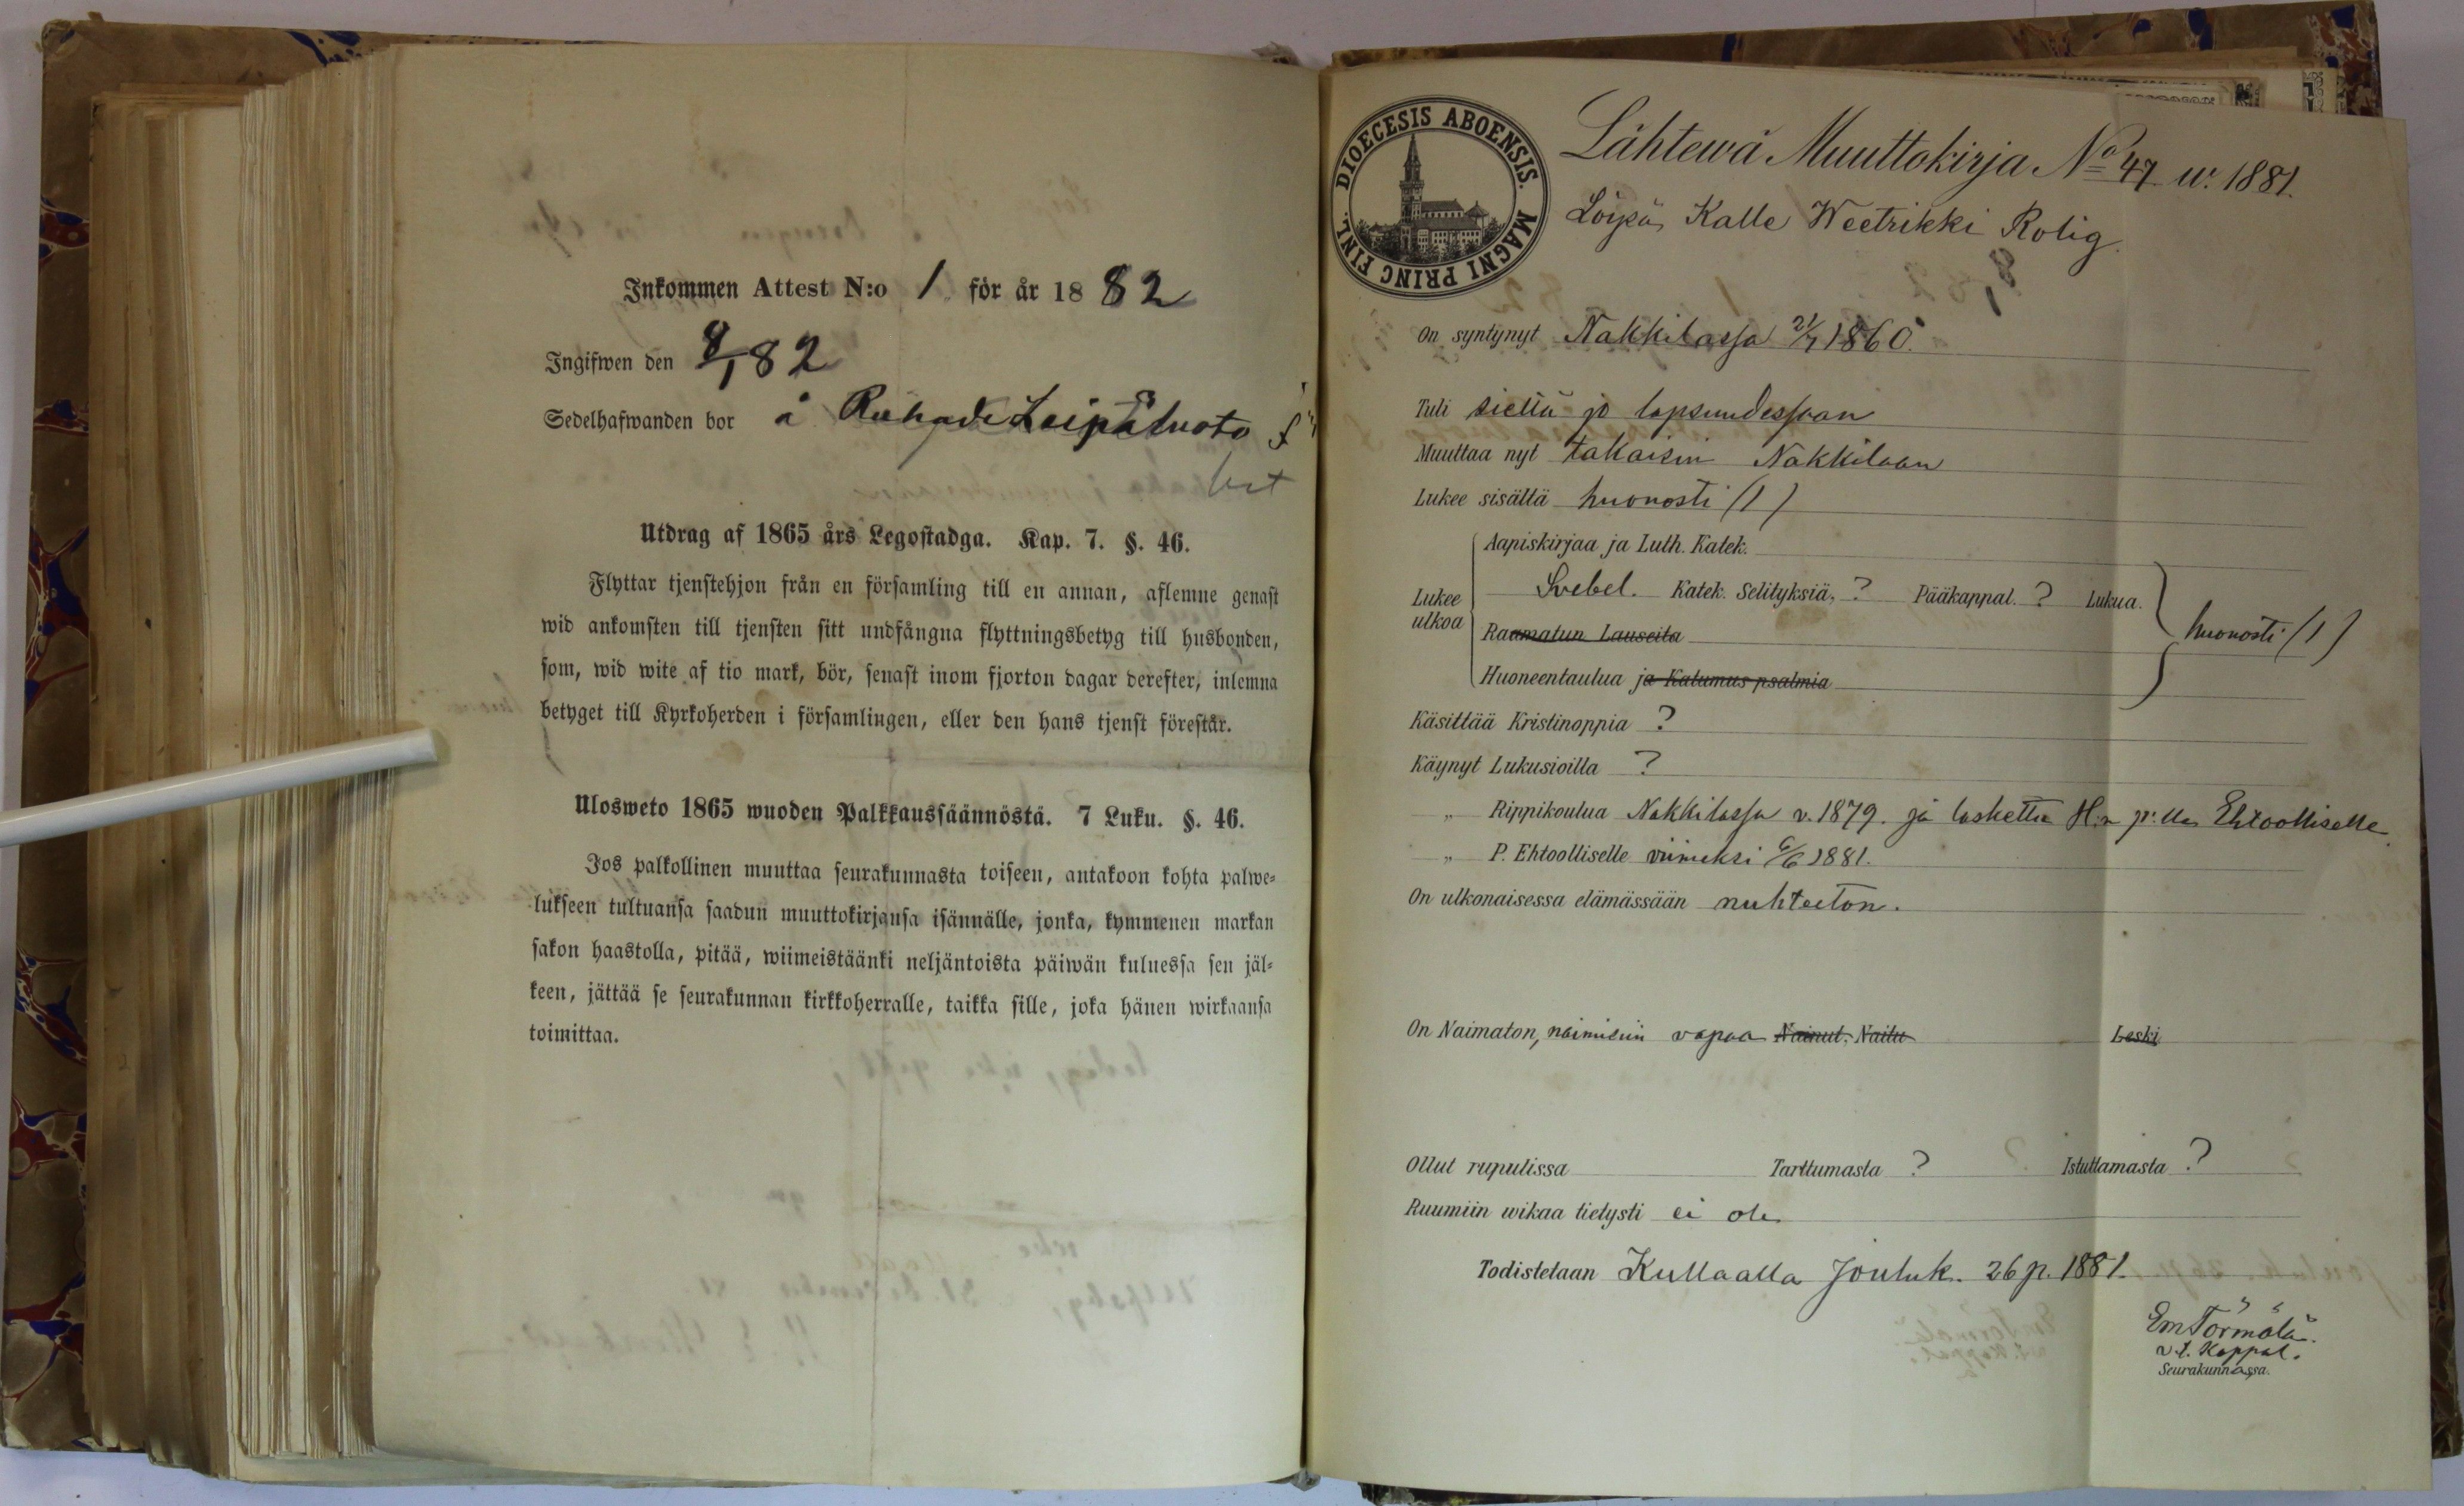 Inkommen Attest N:o 1 för år 1882
Ingifwen den 8/1 82
Sedelhafwanden bor å Leipäluoto
Utdrag af 1865 års Legostadga. Kap. 7. §. 46.
Flyttar tjenstehjon från en församling till en annan, aflemne genast
wid ankomsten till tjensten sitt undfångna flyttningsbetyg till husbonden,
som, wid wite af tio mark, bör, senast inom fjorton dagar derefter, inlemna
betyget till Kyrkoherden i församlingen, eller den hans tjenst förestår.
Ulosweto 1865 wuoden Palkkaussäännöstä. 7 Luku. §. 46.
Jos palkollinen muuttaa seurakunnasta toiseen, antakoon kohta palwe=
lukseen tultuansa saadun muuttokirjansa isännälle, jonka, kymmenen markan
sakon haastolla, pitää, wiimeistäänki neljäntoista päiwän kuluessa sen jäl=
keen, jättää se seurakunnan kirkkoherralle, taikka sille, joka hänen wirkaansa
toimittaa.
DIOECESIS ABOENSIS. MAGNI PRINC FINL.
Lähtewä Muuttokirja No 47 w. 1881.
Kalle Weetrikki Rolig
8/1
On syntynyt Nakkilassa 21/7 1860.
Tuli sieltä jo lapsuudessaan
Muuttaa nyt takaisin Nakkilaan
Lukee sisältä huonosti (1)
Aapiskirjaa ja Luth. Katek.
Lukee ulkoa Svebel. Katek. Selityksiä, ? Pääkappal. ? Lukua. huonosti (1)
Raamatun Lauseita
Huoneentaulua ja Katumus psalmia
Käsittää Kristinoppia ?
Käynyt Lukusioilla ?
„ Rippikoulua Nakkilassa v. 1879. ja laskettu H:n p:lle Ehtoolliselle
„ P. Ehtoolliselle viimeksi 6/6 1881.
On ulkonaisessa elämässään nuhteeton.
On Naimaton, naimisiin vapaa Nainut, Naitu Leski
Ollut rupulissa Tarttumasta ? Istuttamasta ?
Ruumiin wikaa tietysti ei ole
Todistetaan Kullaalla Jouluk. 26 p. 1881.
Em Törmälä.
v.t. Kappal.
Seurakunnassa.